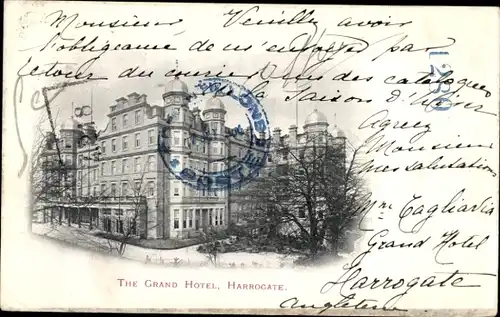 Monsieur Veuillez avoir
l'obligeance de m'envoyer par
retour du courrier un des catalogues
de la Saison d'hiver
Agréez
Monsieur
mes salutations
Mme Tagliavia
Grand Hotel
Harrogate
Angleterre
1280
THE GRAND HOTEL, HARROGATE.